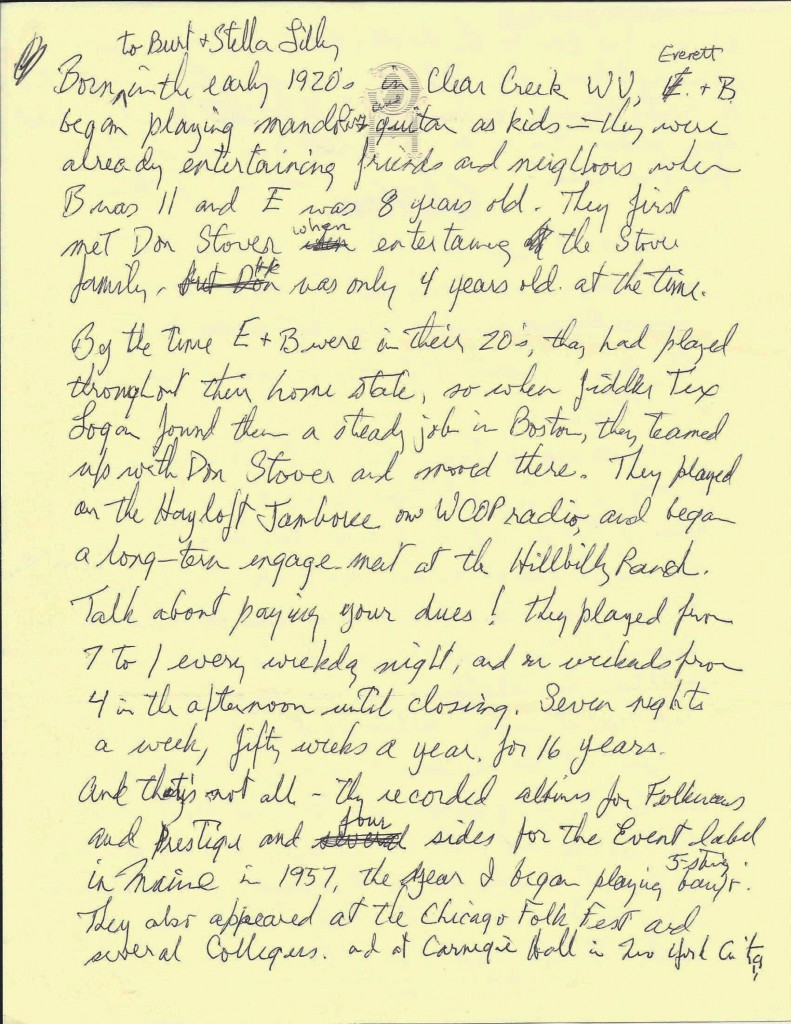 to Burt + Stella Lilly
Everett
Born in the early 1920's in Clear Creek WV, E. + B.
began playing mandolin and guitar as kids — they were
already entertaining friends and neighbors when
B was 11 and E was 8 years old. They first
met Don Stover when entertaining the Stover
family, was only 4 years old. at the time.
By the time E + B were in their 20's, they had played
throughout their home state, so when fiddler Tex
Logan found them a steady job in Boston, they teamed
up with Don Stover and moved there. They played
on the Hayloft Jamboree on WCOP radio, and began
a long-term engagement at the Hillbilly Ranch.
Talk about paying your dues! they played from
7 to 1 every weekday night, and on weekends from
4 in the afternoon until closing. Seven nights
a week, fifty weeks a year, for 16 years.
And that's not all - they recorded albums for Folkways
and Prestige and four sides for the Event label
in Maine in 1957, the year I began playing 5-string banjo.
They also appeared at the Chicago Folk Fest and
several Colleges. and at Carnegie Hall in New York City